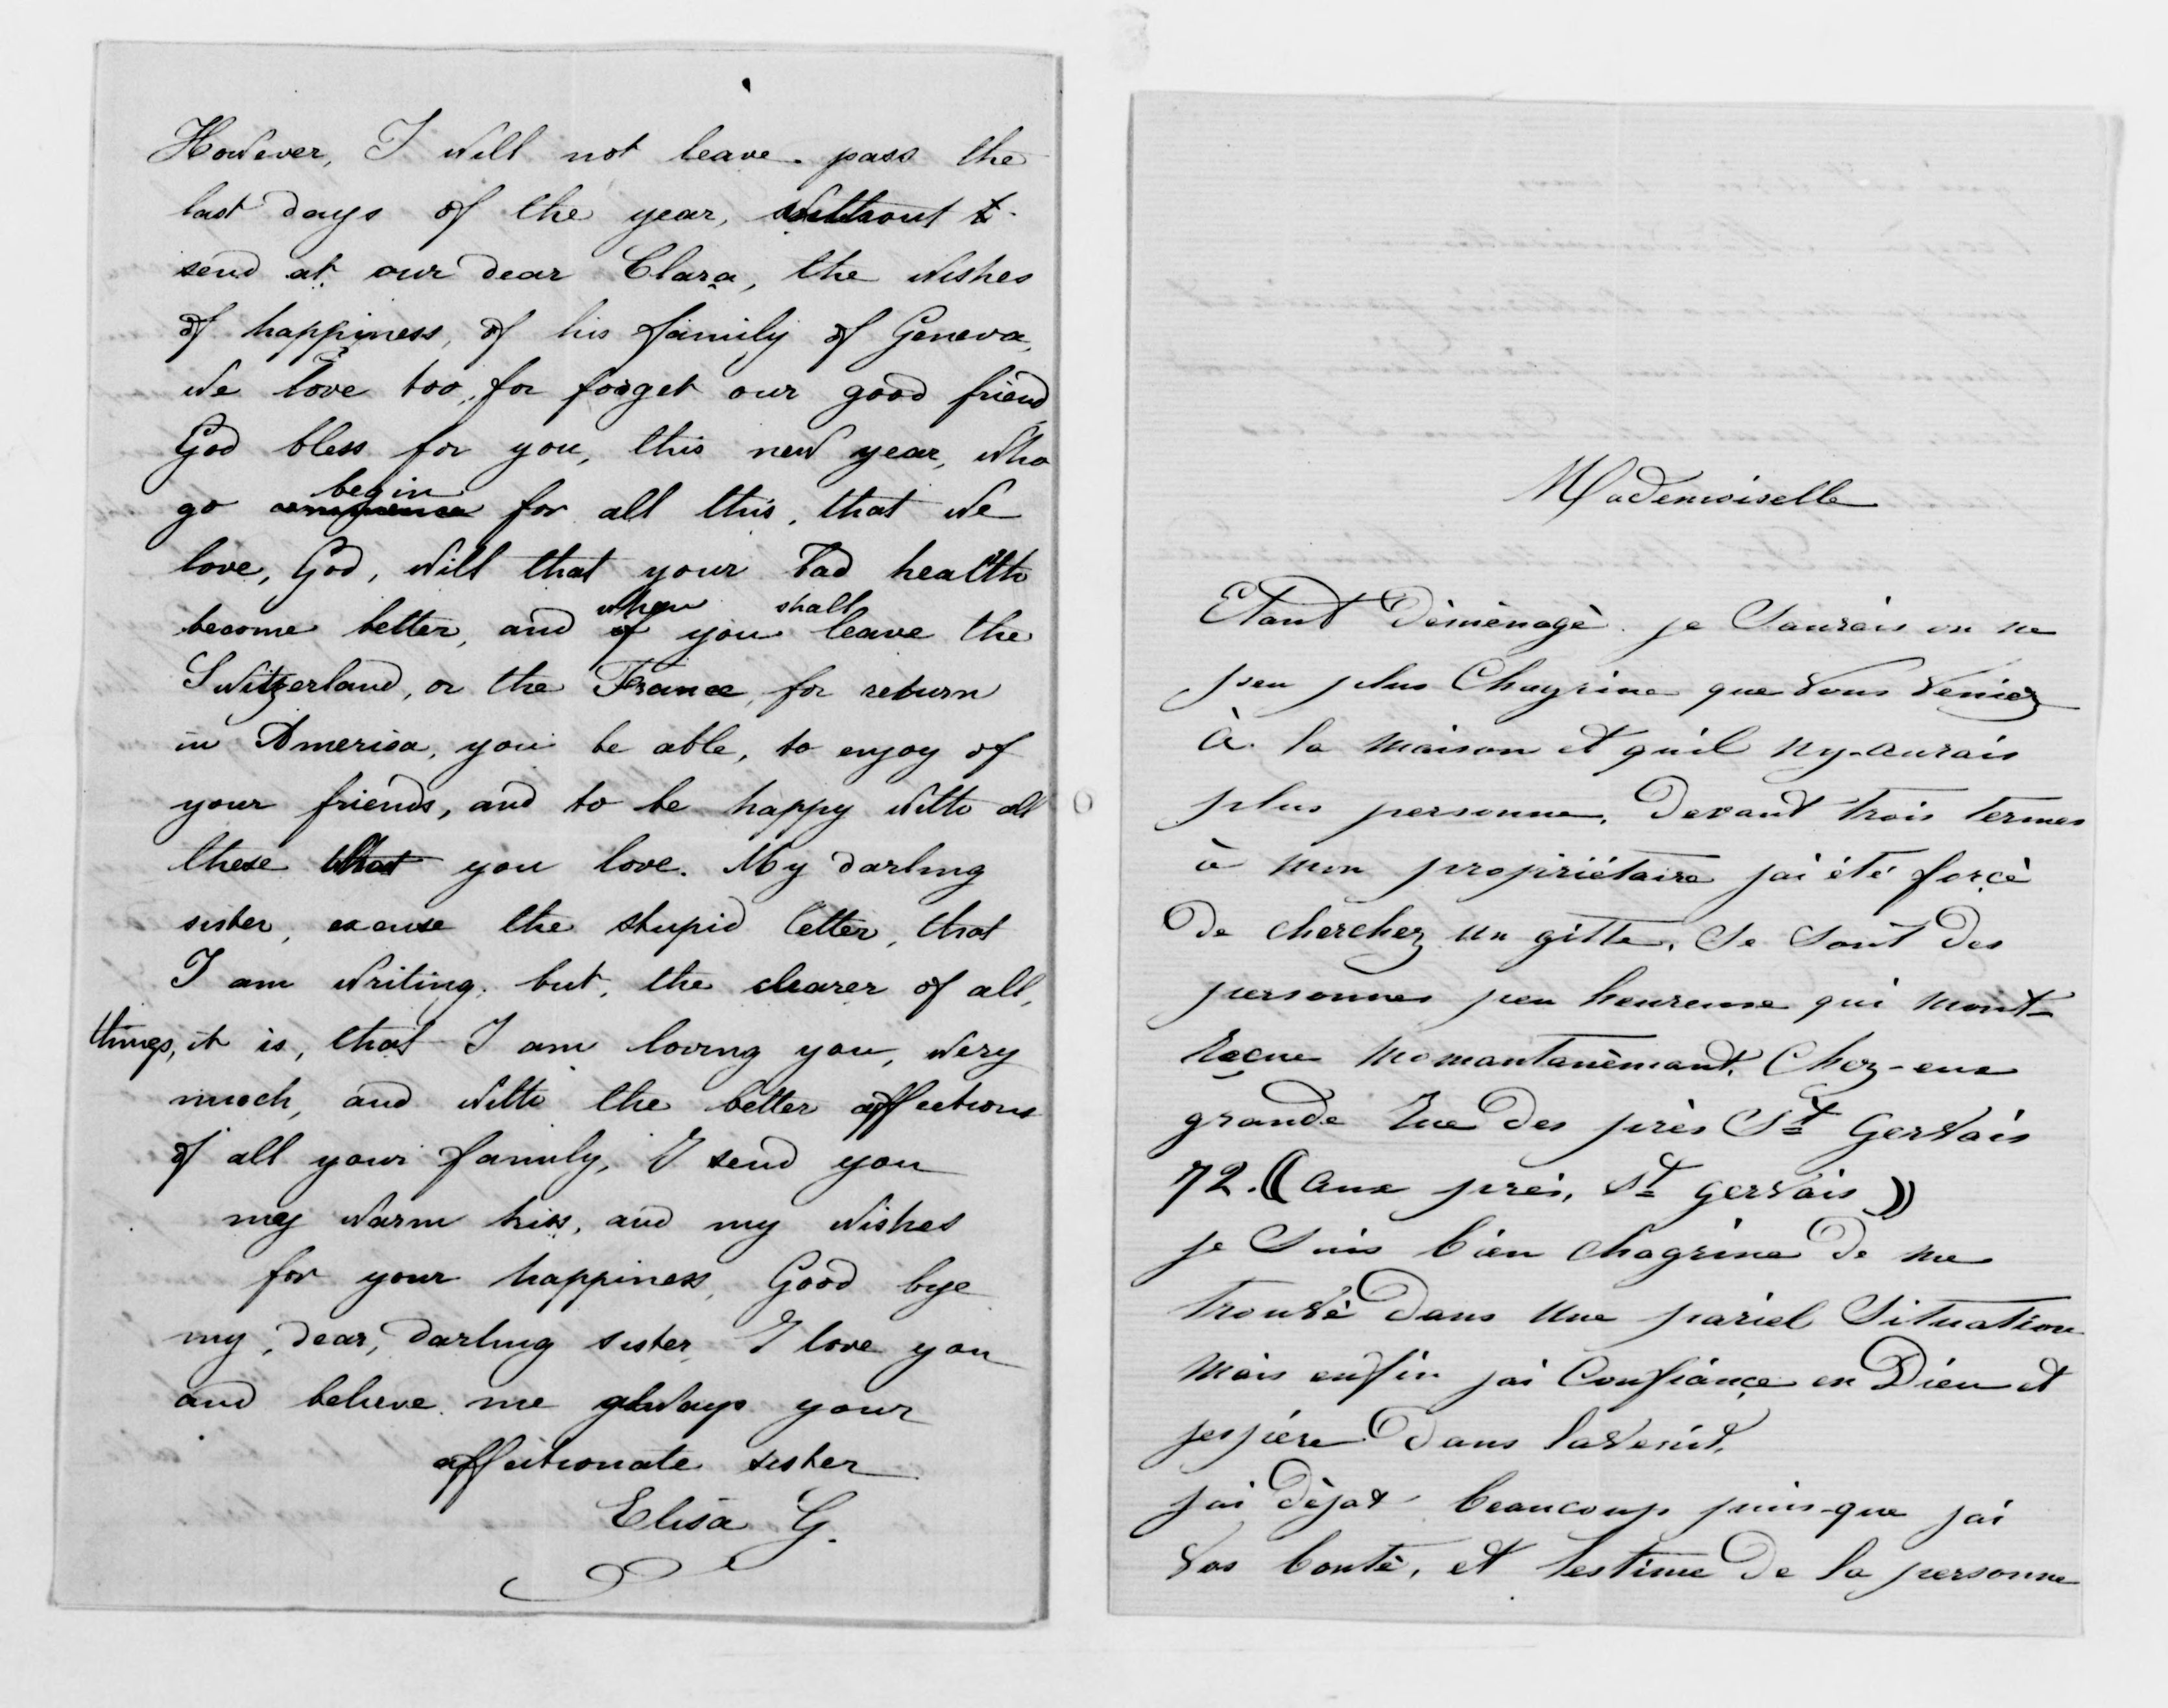 However, I will not leave pass the
last days of the year, without t
send at our dear Clara, the wishes
of happiness, of his family of Geneva,
we love too, for forget our good friend
God bless for you, this new year, who
go commence begin for all this, that we
love, God, will that your bad health
become better, and if when you shall leave the
Switzerland, or the France, for return
in America, you be able, to enjoy of
your friends, and to be happy with all
these that you love. My darling
sister, excuse the stupid letter, that
I am writing, but, the clearer of all,
things, it is, that I am loving you, very
much, and with the better affections
of all your family, I send you
my warm kiss, and my wishes
for your happiness, Good bye
my, dear, darling sister, I love you
and believe me always your
affectionate sister
Elisa G.
Mademoiselle
Etant Dèmènagè je Saurais on ne
peu plus Chagrine que Vous Veniez
à la maison et quil ny-aurais
plus personne, Devant trois termes
à mon propriétaire jai été forcè
De cherchez un gitte, Se Sont Des
personnes peu heureuse qui mont-
reçue momantanèmant, Chez-eux
grande Rue Des près St Gervais
72. (aux près, St gervais)
je Suis bien chagrine De me
trouvè Dans une pariel Situation
mais enfin jai Confiançe en Dieu et
jespère Dans lavenit,
jai Dèjat beaucoup puis-que jai
Vos bontè, et lestime De la personne